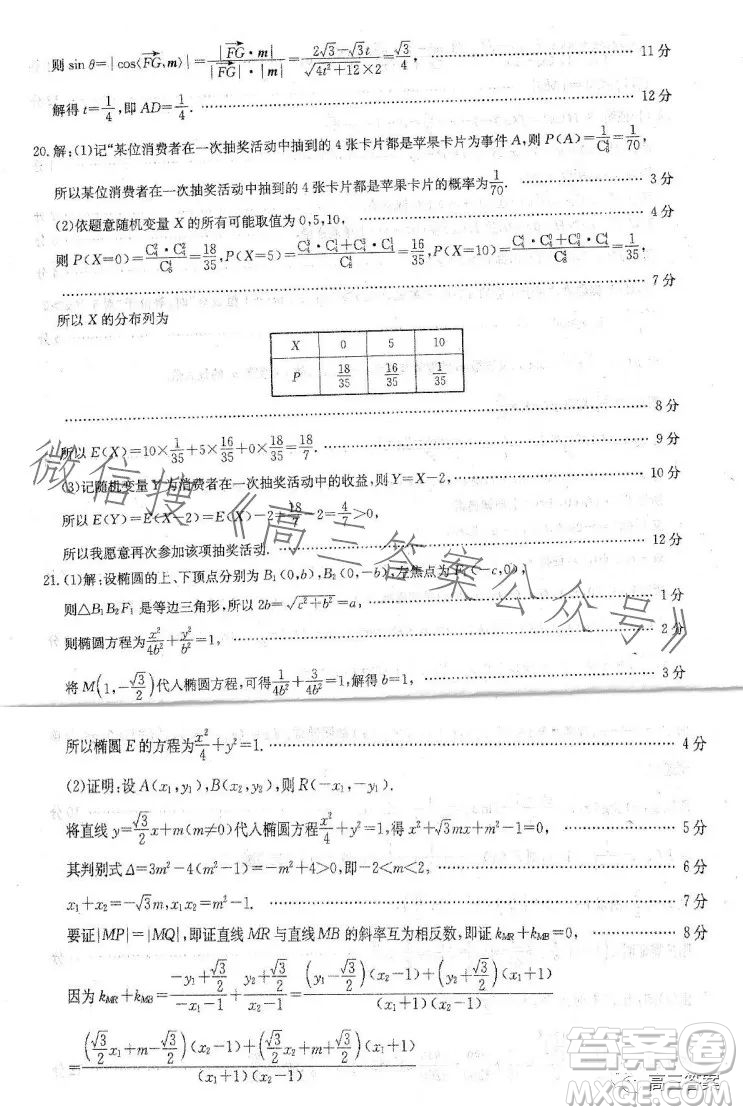 则 sin θ=|cos⟨FG,m⟩|=|FG·m|/(|FG|·|m|)=(2√3-√3t)/(√(4t²+12)×2)=√3/4, 11分
解得 t=1/4,即 AD=1/4. 12分
20.解:(1)记“某位消费者在一次抽奖活动中抽到的4张卡片都是苹果卡片为事件A,则P(A)=1/C₈⁴=1/70,
所以某位消费者在一次抽奖活动中抽到的4张卡片都是苹果卡片的概率为1/70. 3分
(2)依题意随机变量X的所有可能取值为0,5,10, 4分
则P(X=0)=C₄²·C₄²/C₈⁴=18/35,P(X=5)=(C₄³·C₄¹+C₄³·C₄¹)/C₈⁴=16/35,P(X=10)=(C₄⁴+C₄⁴)/C₈⁴=1/35,
7分
所以X的分布列为
X 0 5 10
P 18/35 16/35 1/35
8分
所以E(X)=10×1/35+5×16/35+0×18/35=18/7. 9分
(3)记随机变量Y为消费者在一次抽奖活动中的收益,则Y=X-2, 10分
所以E(Y)=E(X-2)=E(X)-2=18/7-2=4/7>0,
所以我愿意再次参加该项抽奖活动. 12分
21.(1)解:设椭圆的上、下顶点分别为B₁(0,b),B₂(0,-b),左焦点为F₁(-c,0),
则△B₁B₂F₁是等边三角形,所以2b=√(c²+b²)=a, 1分
则椭圆方程为x²/4b²+y²/b²=1, 2分
将M(1,-√3/2)代入椭圆方程,可得1/4b²+3/4b²=1,解得b=1, 3分
所以椭圆E的方程为x²/4+y²=1. 4分
(2)证明:设A(x₁,y₁),B(x₂,y₂),则R(-x₁,-y₁).
将直线y=√3/2x+m(m≠0)代入椭圆方程x²/4+y²=1,得x²+√3mx+m²-1=0, 5分
其判别式Δ=3m²-4(m²-1)=-m²+4>0,即-2<m<2. 6分
x₁+x₂=-√3m,x₁x₂=m²-1. 7分
要证|MP|=|MQ|,即证直线MR与直线MB的斜率互为相反数,即证k_MR+k_MB=0. 8分
因为k_MR+k_MB=(-y₁+√3/2)/(-x₁-1)+(y₂+√3/2)/(x₂-1)=((y₁-√3/2)(x₂-1)+(y₂+√3/2)(x₁+1))/((x₁+1)(x₂-1))
=((√3/2x₁+m-√3/2)(x₂-1)+(√3/2x₂+m+√3/2)(x₁+1))/((x₁+1)(x₂-1))
微信搜《高三答案公众号》
答案圈
高三答案
MXQE.COM